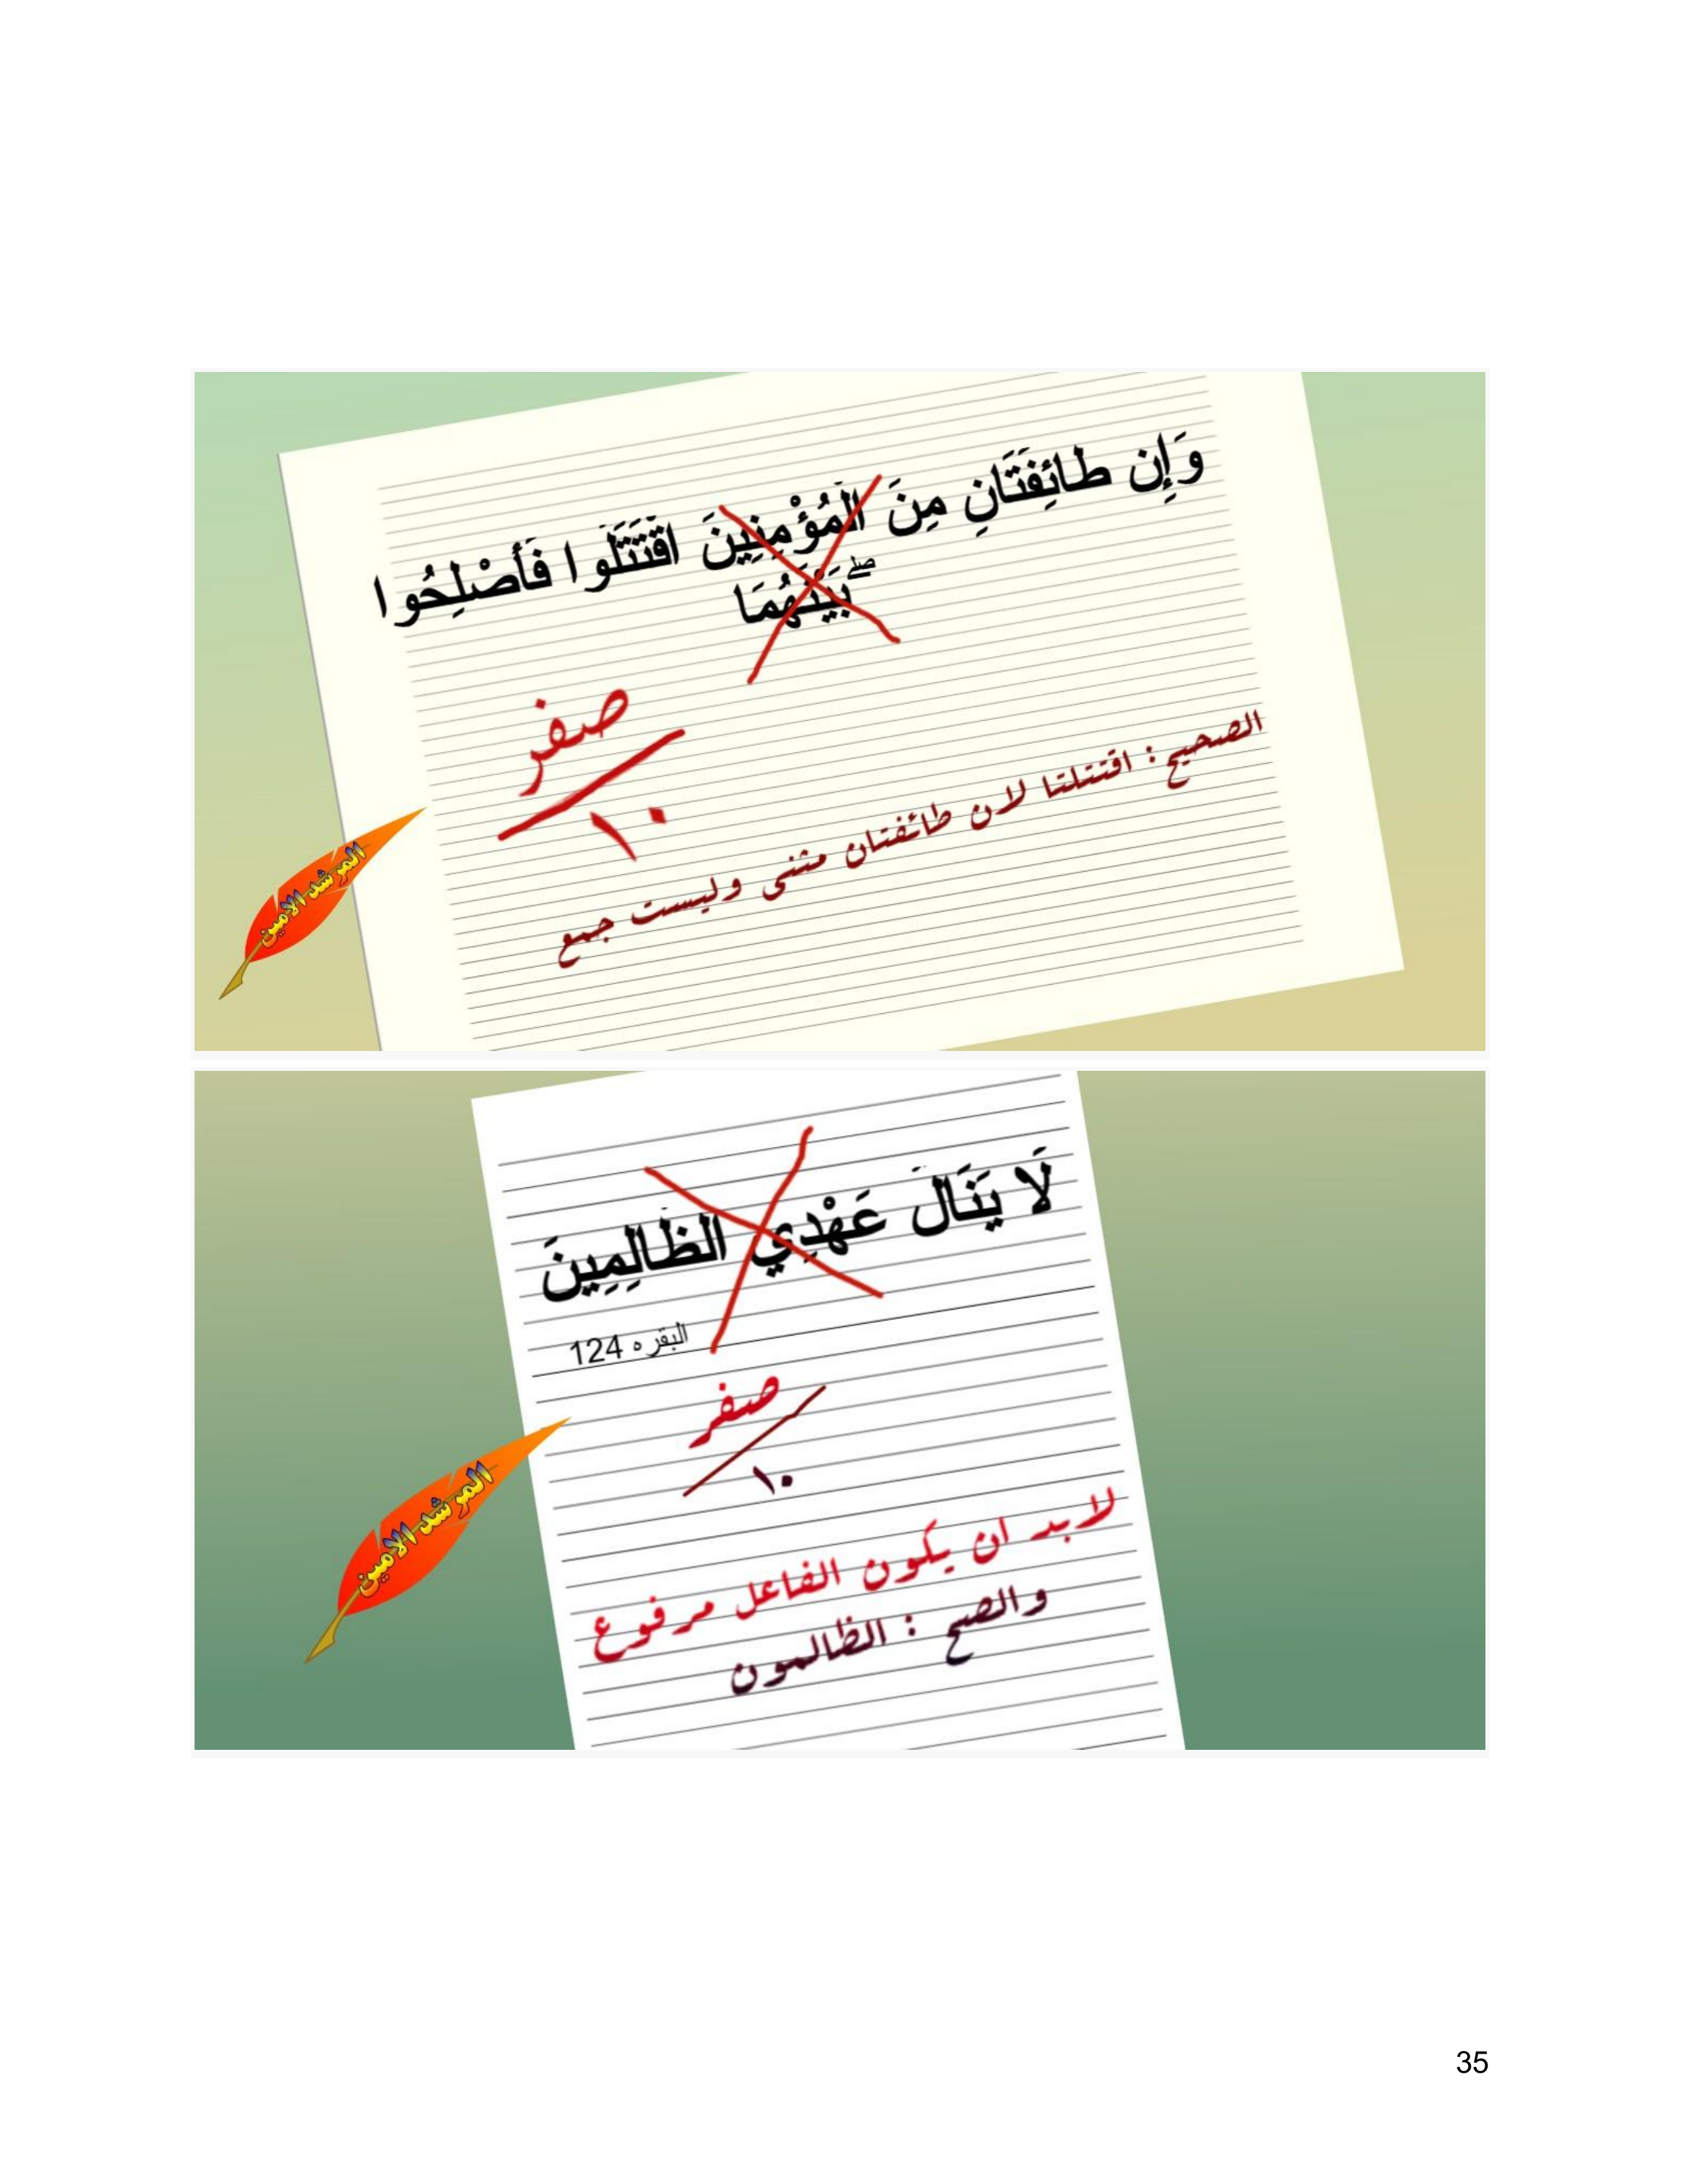 وَإِن طَائِفَتَانِ مِنَ الْمُؤْمِنِينَ اقْتَتَلُوا فَأَصْلِحُوا
بَيْنَهُمَا ۖ
صفر
١٠
الصحيح : اقتتلتا لان طائفتان مثنى وليست جمع
المرشد الامين
لَا يَنَالُ عَهْدِي الظَّالِمِينَ
البقره 124
صفر
١٠
لابد ان يكون الفاعل مرفوع
والصح : الظالمون
المرشد الامين
35